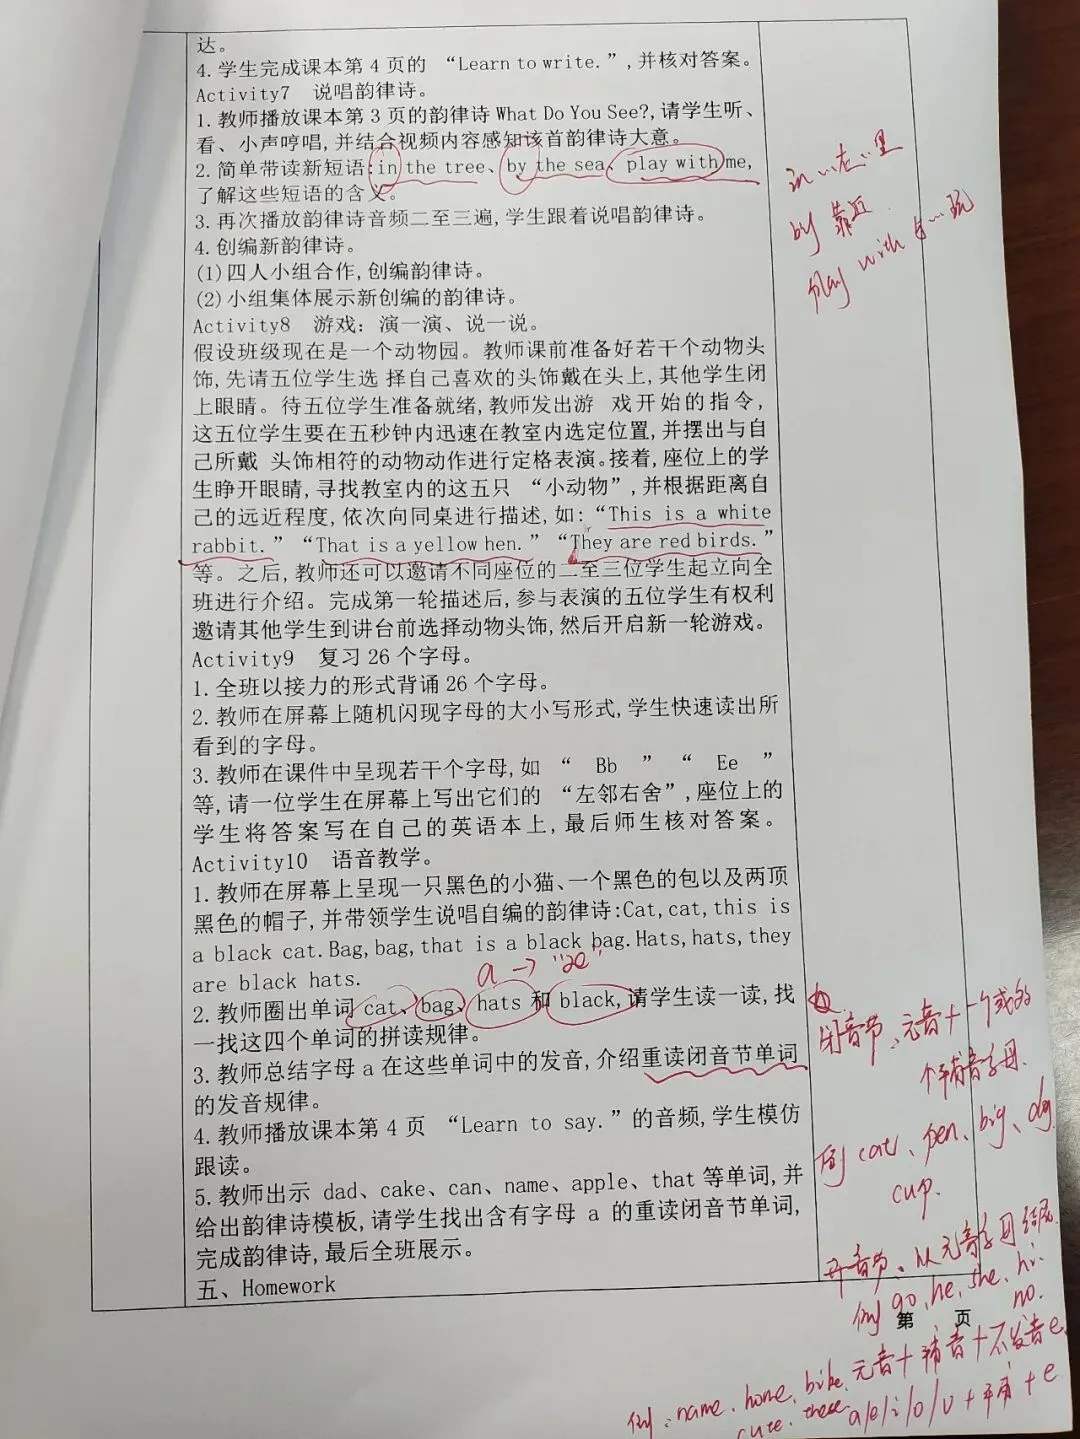 达。
4. 学生完成课本第 4 页的 “Learn to write.”,并核对答案。
Activity7 说唱韵律诗。
1. 教师播放课本第 3 页的韵律诗 What Do You See?,请学生听、
看、小声哼唱,并结合视频内容感知该首韵律诗大意。
2. 简单带读新短语:in the tree、by the sea、play with me,
了解这些短语的含义。
3. 再次播放韵律诗音频二至三遍,学生跟着说唱韵律诗。
4. 创编新韵律诗。
(1)四人小组合作,创编韵律诗。
(2)小组集体展示新创编的韵律诗。
Activity8 游戏: 演一演、说一说。
假设班级现在是一个动物园。教师课前准备好若干个动物头
饰,先请五位学生选 择自己喜欢的头饰戴在头上,其他学生闭
上眼睛。待五位学生准备就绪,教师发出游 戏开始的指令,
这五位学生要在五秒钟内迅速在教室内选定位置,并摆出与自
己所戴 头饰相符的动物动作进行定格表演。接着,座位上的学
生睁开眼睛,寻找教室内的这五只 “小动物”,并根据距离自
己的远近程度,依次向同桌进行描述,如: “This is a white
rabbit.” “That is a yellow hen.” “They are red birds.”
等。之后,教师还可以邀请不同座位的二至三位学生起立向全
班进行介绍。完成第一轮描述后,参与表演的五位学生有权利
邀请其他学生到讲台前选择动物头饰,然后开启新一轮游戏。
Activity9 复习 26 个字母。
1. 全班以接力的形式背诵 26 个字母。
2. 教师在屏幕上随机闪现字母的大小写形式,学生快速读出所
看到的字母。
3. 教师在课件中呈现若干个字母,如 “ Bb ” “ Ee ”
等,请一位学生在屏幕上写出它们的 “左邻右舍”,座位上的
学生将答案写在自己的英语本上,最后师生核对答案。
Activity10 语音教学。
1. 教师在屏幕上呈现一只黑色的小猫、一个黑色的包以及两顶
黑色的帽子,并带领学生说唱自编的韵律诗:Cat, cat, this is
a black cat. Bag, bag, that is a black bag. Hats, hats, they
are black hats.
a → "æ"
2. 教师圈出单词 cat、bag、hats 和 black,请学生读一读,找
一找这四个单词的拼读规律。
3. 教师总结字母 a 在这些单词中的发音,介绍重读闭音节单词
的发音规律。
4. 教师播放课本第 4 页 “Learn to say.”的音频,学生模仿
跟读。
5. 教师出示 dad、cake、can、name、apple、that 等单词,并
给出韵律诗模板,请学生找出含有字母 a 的重读闭音节单词,
完成韵律诗,最后全班展示。
五、Homework
in …在…里
by 靠近
play with 与…玩
闭音节、元音+一个或多
个辅音字母.
例 cat、pen、big、dog
cup.
开音节、从元音字母结尾
例 go, he, she, hi.
no.
第 页
元音+辅音+不发音e.
例:name、home、bike,
cute、these
a/e/i/o/u+辅+e